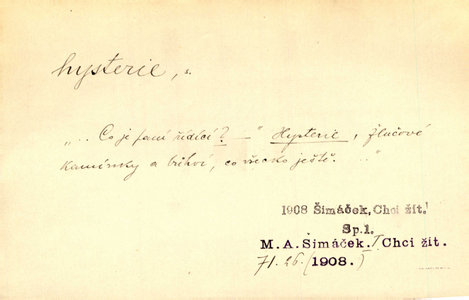 hysterie, s.
„.. Co je paní řídící? —" Hysterie, žlučové
kamínky a bůhví, co všecko ještě. ..."
1908 Šimáček, Chci žít!
Sp.1.
M. A. Šimáček. I Chci žít.
71.26. (1908.)